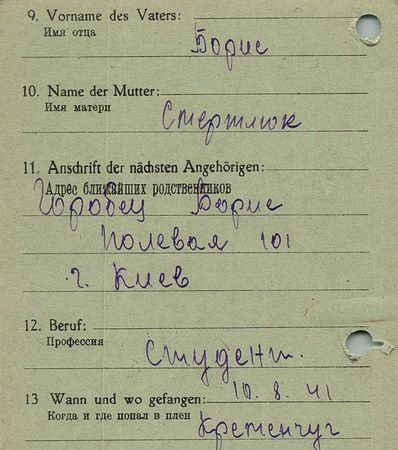 9. Vorname des Vaters:
Имя отца
Борис
10. Name der Mutter:
Имя матери
Стертлюк
11. Anschrift der nächsten Angehörigen:
Адрес ближайших родственников
Горобец Борис
Полевая 101
г. Киев
12. Beruf:
Профессия
Студент.
13 Wann und wo gefangen: 10. 8. 41
Когда и где попал в плен
Кременчуг